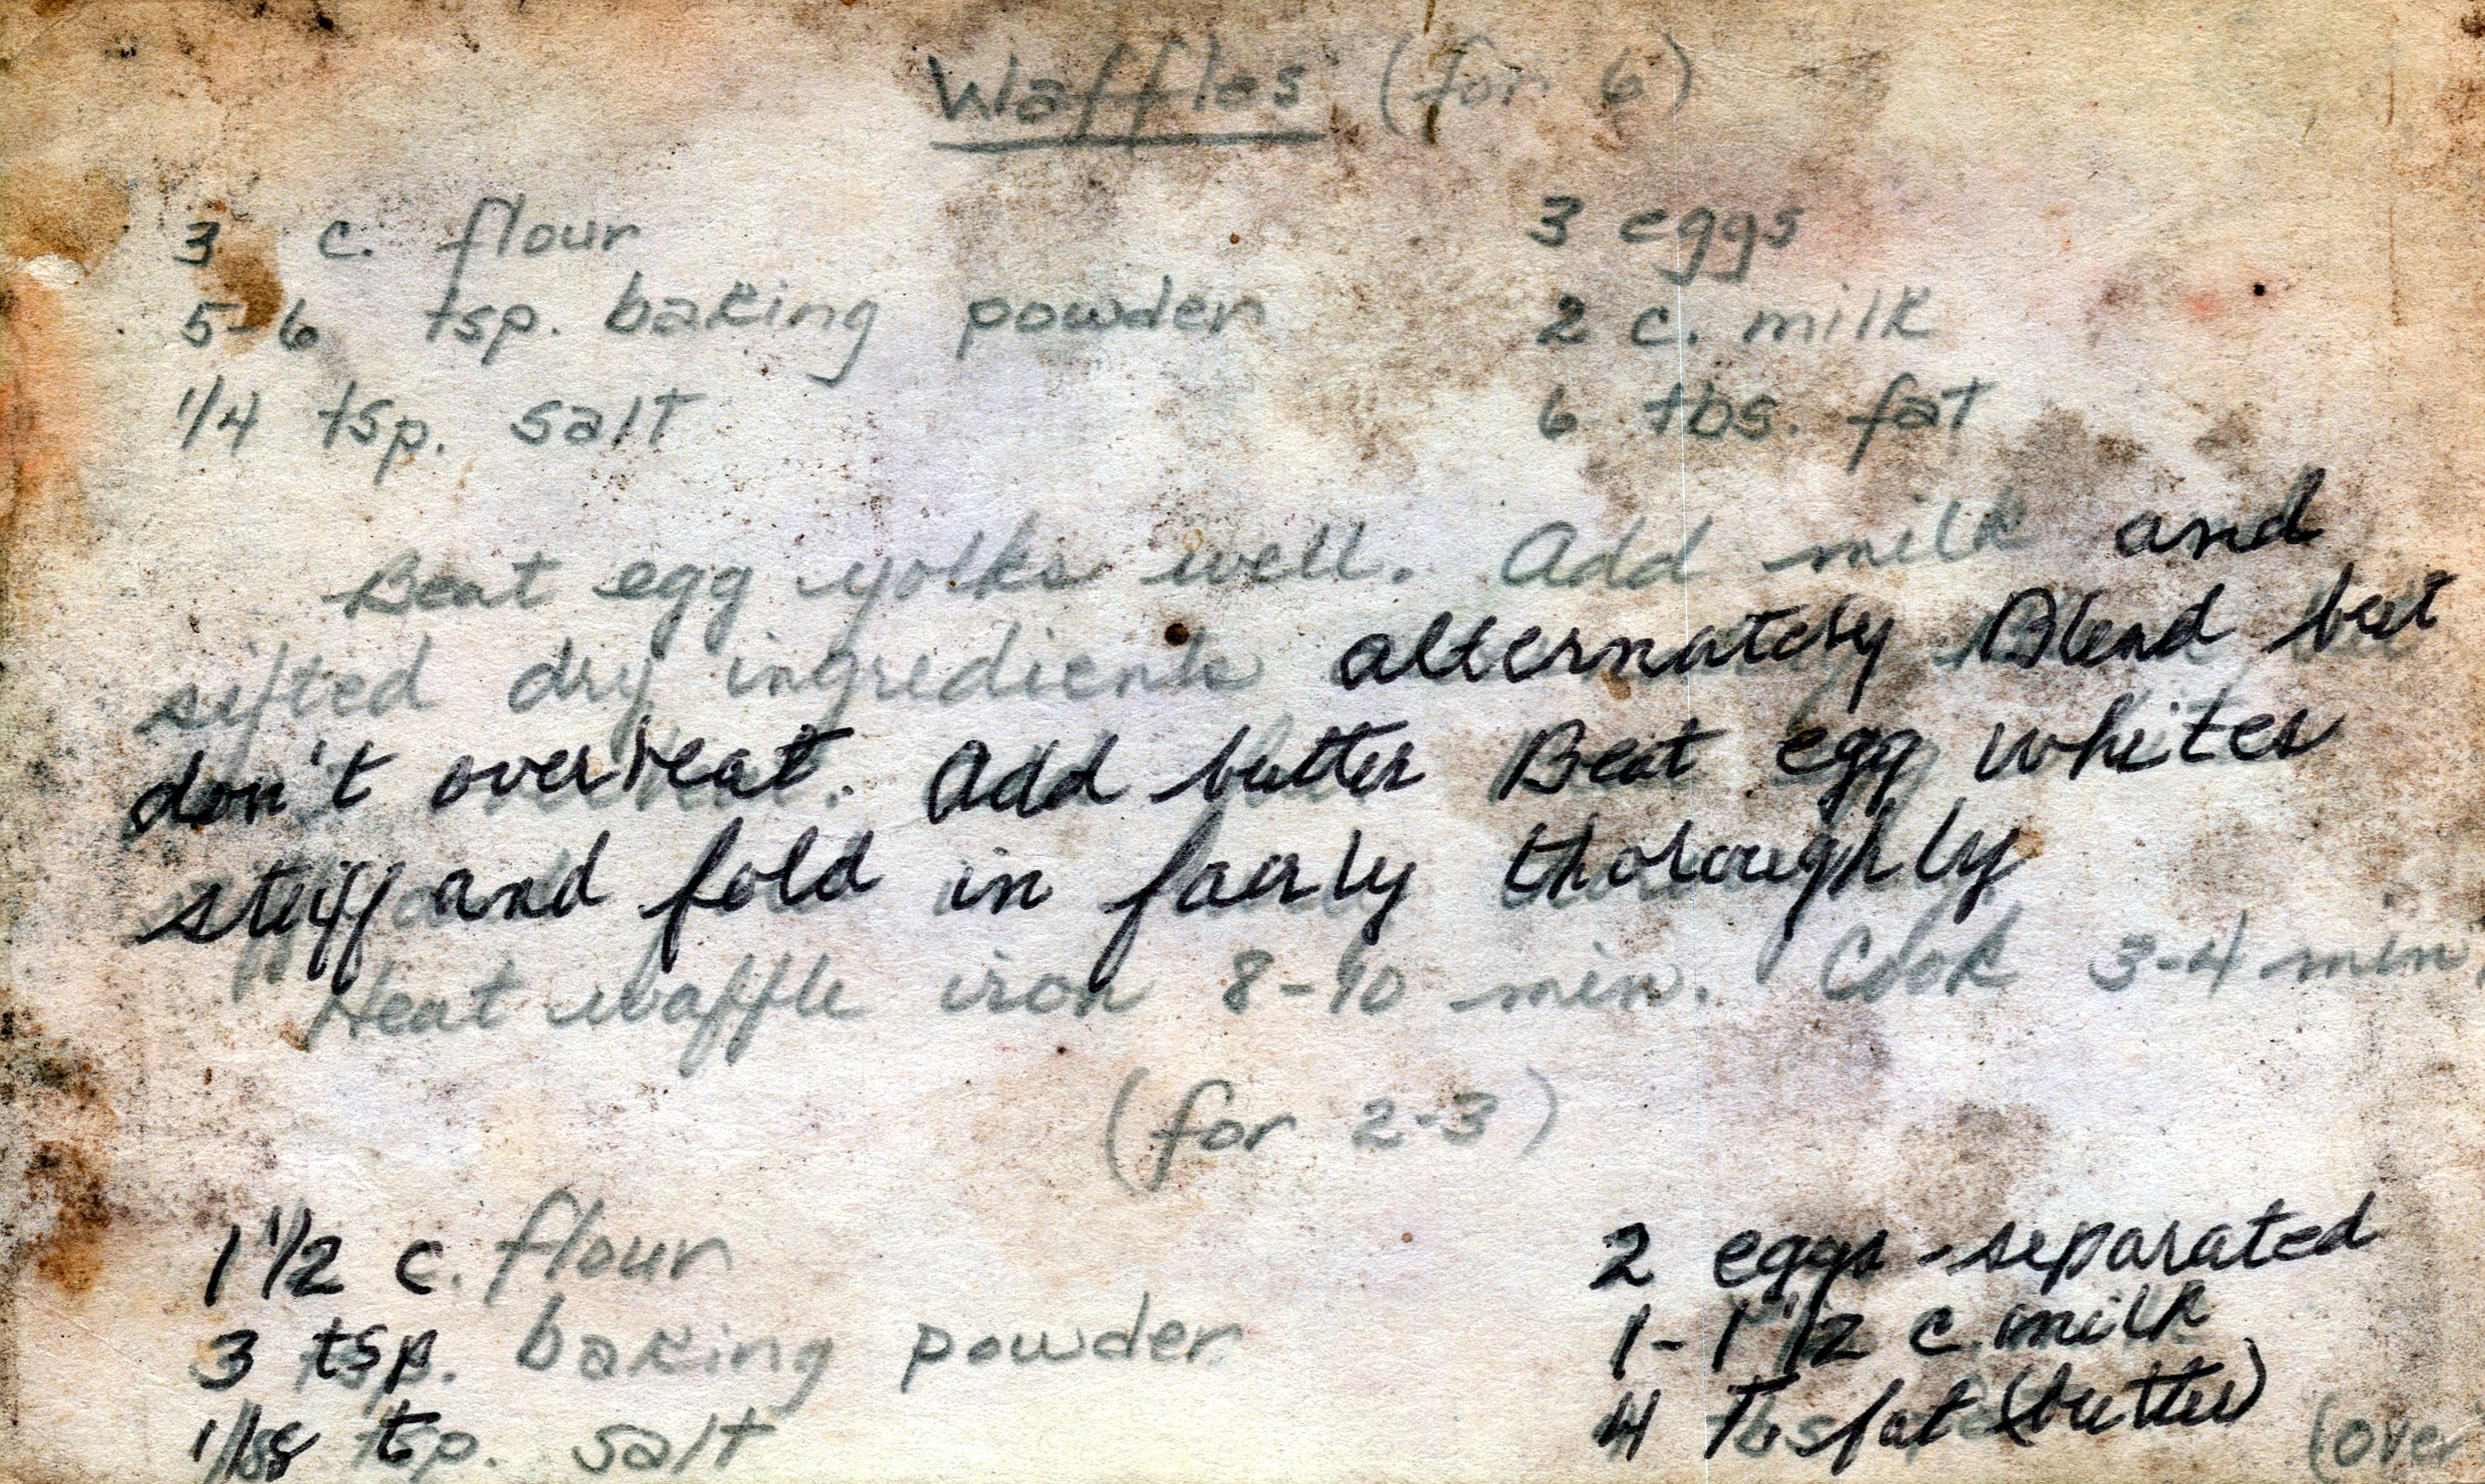 Waffles (for 6)
3 c. flour
5-6 tsp. baking powder
1/4 tsp. salt
3 eggs
2 c. milk
6 tbs. fat
Beat egg yolks well. Add milk and
sifted dry ingredients alternately Blend but
don't overbeat. Add butter Beat egg whites
stiff and fold in fairly thoroughly
Heat waffle iron 8-10 min. Cook 3-4 min.
(for 2-3)
1 1/2 c. flour
3 tsp. baking powder
1/8 tsp. salt
2 eggs - separated
1 - 1 1/2 c. milk
4 Tbs fat (butter)
(over